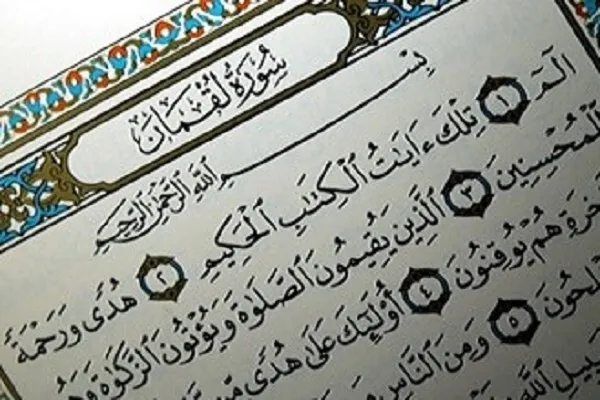 سُورَةُ لُقْمَانَ
بِسْمِ اللَّهِ الرَّحْمَٰنِ الرَّحِيمِ
الٓمٓ ١ تِلْكَ ءَايَٰتُ ٱلْكِتَٰبِ ٱلْحَكِيمِ ٢ هُدًى وَرَحْمَةً
لِّلْمُحْسِنِينَ ٣ ٱلَّذِينَ يُقِيمُونَ ٱلصَّلَوٰةَ وَيُؤْتُونَ ٱلزَّكَوٰةَ وَهُم
هُمْ يُوقِنُونَ ٤ أُو۟لَٰٓئِكَ عَلَىٰ هُدًى مِّن
٥ وَمِنَ ٱلنَّاسِ
سَبِيلِ ٱللَّهِ